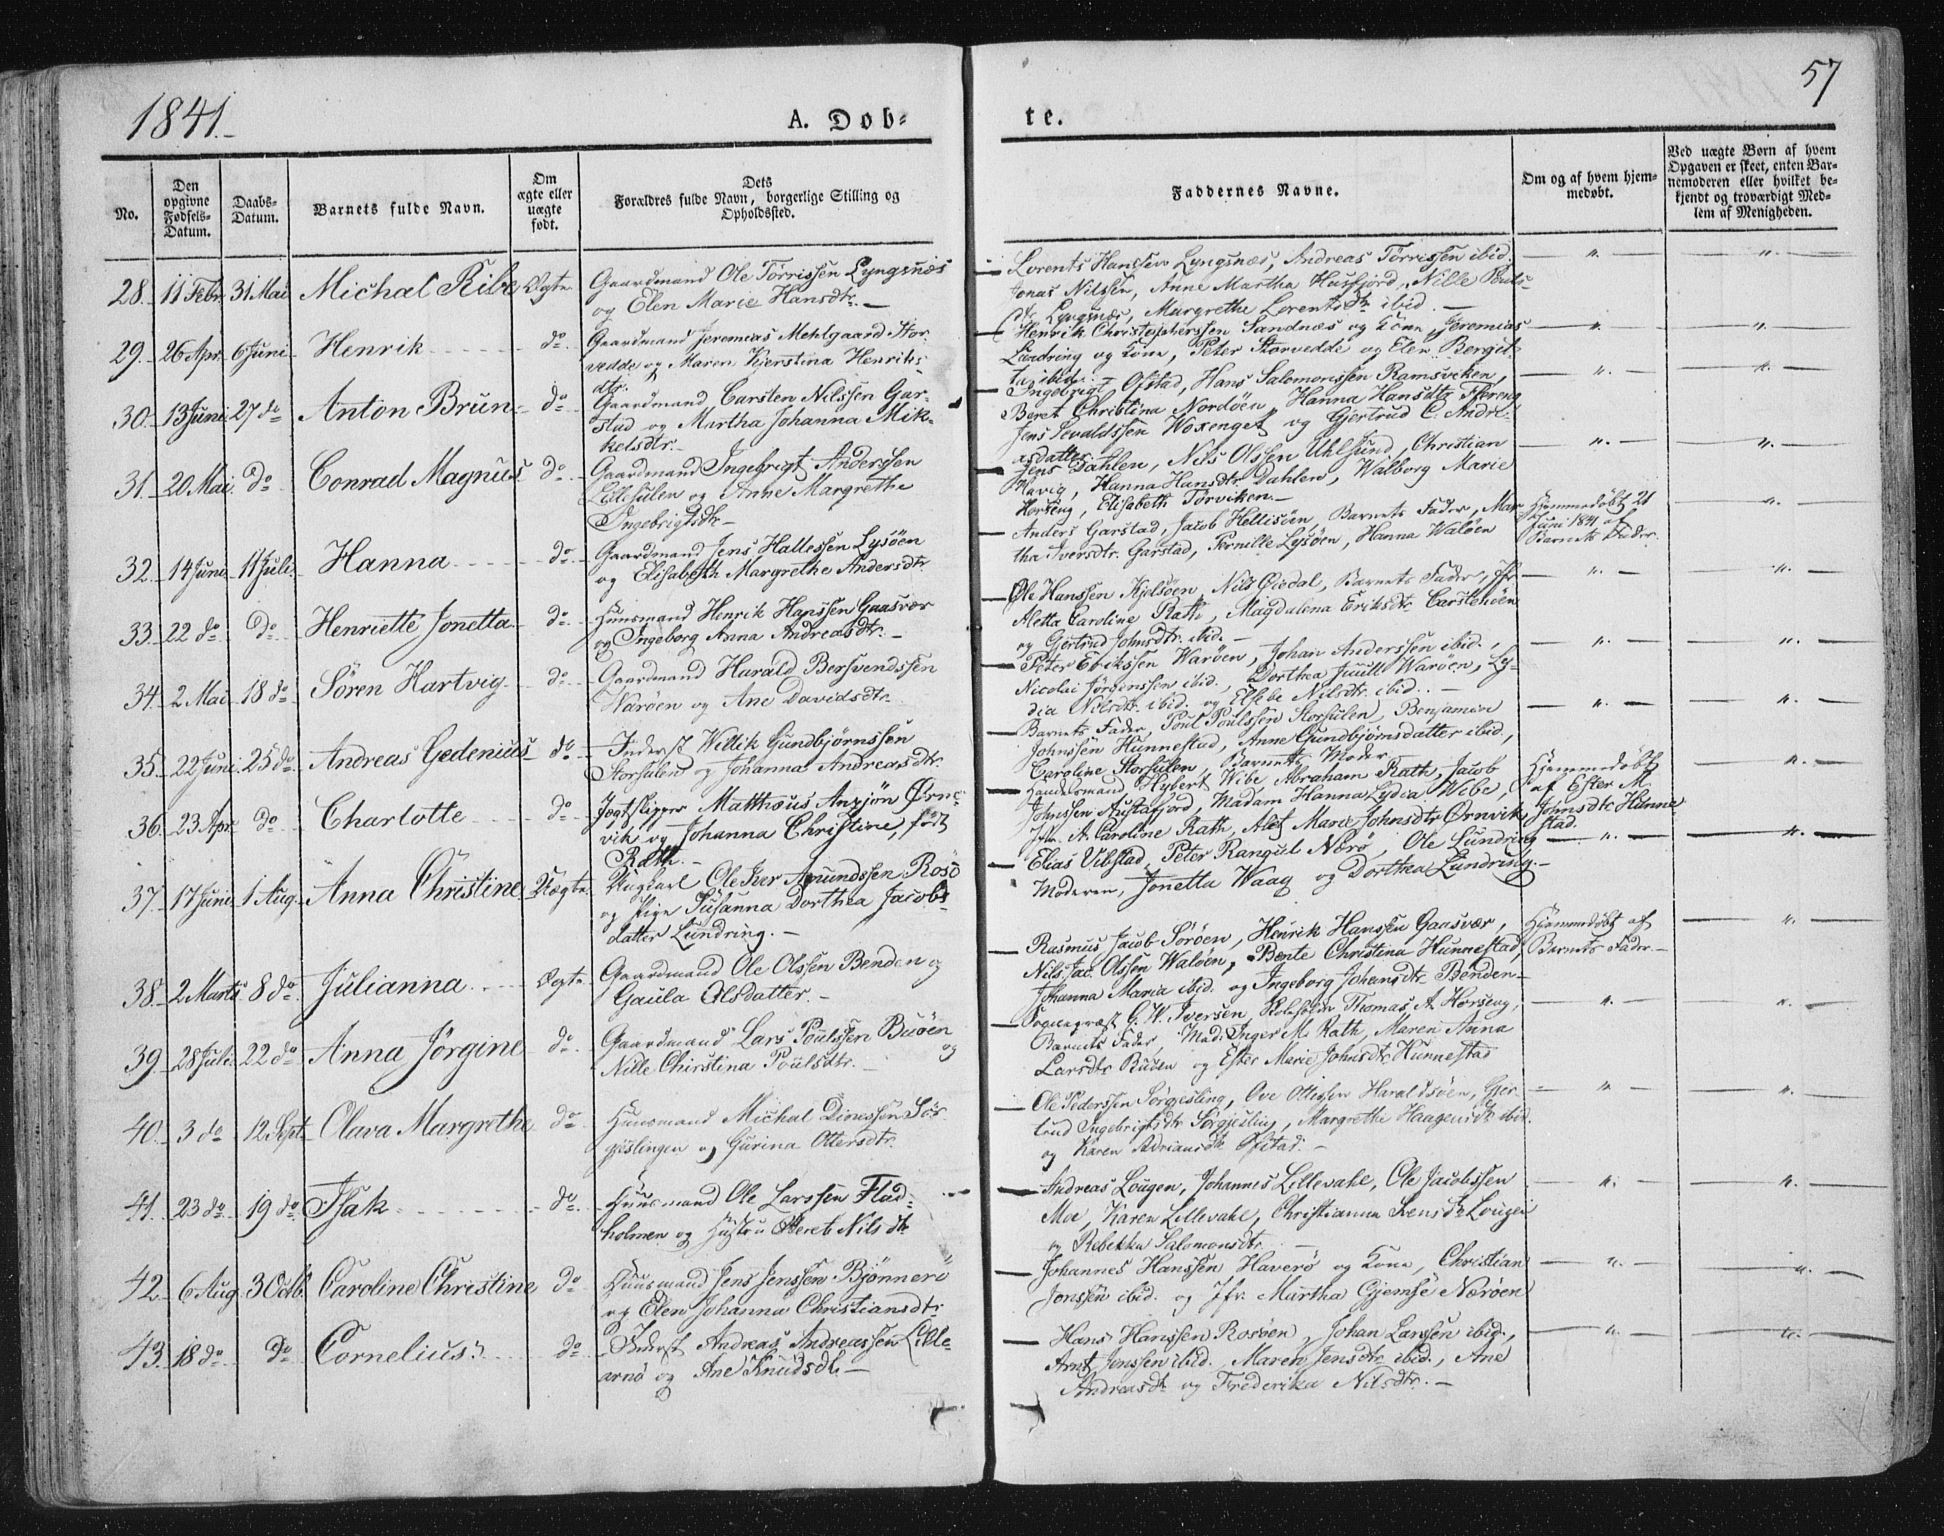 1841.
57
A. Døb-
te.
No.
Den opgivne Fødsels-Datum.
Daabs-Datum.
Barnets fulde Navn.
Om ægte eller uægte født.
Dets Forældres fulde Navn, borgerlige Stilling og Opholdssted.
Faddernes Navne.
Om og af hvem hjem-medøbt.
Ved uægte Børn af hvem Opgaven er skeet, enten Bar-nemoderen eller hvilket be-kjendt og troværdigt Med-lem af Menigheden.
28. 11 Febr. 31 Mai Michal Ribe Ægte
Gaardmand Ole Tørrissen Lyngsnæs
og Elen Marie Hansdtr. —
Lorents Hanssen Lyngsnæs, Andreas Tørrissen ibid.
Jonas Nilssen, Anne Martha Husfjord, Nille Pouls-
dtr. Lyngsnæs, Margrethe Lorentsdtr ibid —
29. 26 Apr. 6 Juni Henrik do
Gaardmand Jeremias Mehlgaard Stor-
vedde og Maren Kjerstina Henriks-
dtr.
Henrik Christophersen Sandnæs og Kone, Jeremias
Lundring og Kone, Peter Storvedde og Elen Bergit-
ta ibid.
30. 13 Juni 27 do Anton Brun do
Gaardmand Carsten Nilssen Gar-
stad og Martha Johanna Mik-
kelsdtr.
Ingebrigt Ofstad, Hans Salomonssen Ramsviken,
Beret Christina Nordøen, Hanna Hansdtr
Jens Sevaldssen Woxenget og Gjertrud C. Andre-
asdatter.
31. 20 Mai do Conrad Magnus do
Gaardmand Ingebrigt Anderssen
Lillesulen og Anne Margrethe
Ingebrigtsdtr —
Jens Dahlen, Nils Olssen Uhlsund, Christian
Mavig, Hanna Hansdtr Dahlen, Walborg Marie
Horseng, Elisabeth Tørviken. —
32. 14 Juni 11 Juli Hanna do
Gaardmand Jens Hallessen Lysøen
og Elisabeth Margrethe Andersdtr
Anders Garstad, Jacob Hellisøen, Barnets Fader, Mar-
tha Iversdtr. Garstad, Pernille Lysøen, Hanna Waløen
Hjemmedøbt 21
Juni 1841 af
Barnets Fader.
33. 22 do do Henriette Jonetta do
Huusmand Henrik Hanssen Gaasvær
og Ingeborg Anna Andreasdtr. —
Ole Hanssen Kjelsøen, Nils Qvedal, Barnets Fader, Jfr.
Aletta Caroline Rath, Magdalena Eriksdtr Carstenøen
og Gjertrud Johnsdtr. ibid. —
34. 2 Mai 18 do Søren Hartvig do
Gaardmand Harald Bersvendssen
Warøen og Ane Davidsdtr.
Peter Erikssen Warøen, Johan Anderssen ibid.,
Nicolai Jørgenssen ibid., Dorthea Juull Warøen, Ly-
dia Nilsdtr. ibid. og Elsebe Nilsdtr. ibid. —
35. 22 Juni 25 do Andreas Gedenius do
Inderst Wellik Gundbjørnssen
Storsulen og Johanna Andreasdtr.
Barnets Fader, Poul Poulssen Storsulen, Benjamin
Johnssen Hunnestad, Anne Gundbjørnsdatter ibid.,
Caroline Storsulen, Barnets Moder
36. 23 Apr. do Charlotte do
Jagtskipper Matthæus Anzjøn Ørne-
vik og Johanna Christine, født
Rath. —
Handelsmand Hybert Wibe, Abraham Rath, Jacob
Johnsen Austafjord, Madam Hanna Lydia Wibe,
Jfr. A. Caroline Rath, Alet Marie Johnsdtr Ørnvik
Hjemmedøbt
af Ester M.
Johnsdtr Hunne-
stad.
37. 17 Juni 1 Aug. Anna Christine Uægte
Ungkarl Ole Iver Amundssen Rosø
og Pige Susanna Dorthea Jacobs-
datter Lundring. —
Elias Vibstad, Peter Rangul Nærø, Ole Lundring
Moderen, Jonetta Waag og Dorthea Lundring. —
38. 2 Marts 8 do Julianna Ægte
Gaardmand Ole Olssen Benden og
Gaula Olsdatter. —
Rasmus Jacob Sørøen, Henrik Hanssen Gaasvær,
Nils Jac. Olssen Waløen, Bente Christina Hunnestad,
Johanna Maria ibid. og Ingeborg Johansdtr Benden —
Hjemmedøbt af
Barnets Fader —
39. 28 Juli 22 do Anna Jørgine do
Gaardmand Lars Poulssen Buøen og
Nille Christina Poulsdtr. —
Sognepræst G. W. Iversen, Thomas A. Horseng,
Barnets Fader, Mad. Inger M. Rath, Maren Anna
Larsdtr Buøen og Ester Marie Johnsdtr Hunnestad
40. 3 do 12 Sept. Olava Margrethe do
Huusmand Michal Dinessen Sør-
gjislingen og Gurina Ottersdtr.
Ole Pederssen Sørgjesling, Ove Ottesen Haraldsøen, Gjer-
trud Ingebrigtsdtr Sørgjesling, Margrethe Haagensdtr ibid.
og Karen Adriansdtr Ofstad. —
41. 23 do 19 do Isak do
Huusmand Ole Larssen Flad-
holmen og Beret Nilsdtr
Andreas Lougen, Johannes Lillevahl, Ole Jacobssen
Moe, Karen Lillevahl, Christianna Lougen
og Rebekka Salamonsdtr —
42. 6 Aug. 3 Octb. Caroline Christine do
Huusmand Jens Jenssen Bjønnerø
og Elen Johanna Christiansdtr
Johannes Hanssen Haverø og Kone, Christian
Jonssen ibid. og Jfr. Martha Gjemse Nærøen
43. 18 do do Cornelius do
Inderst Andreas Andreassen Lille-
arnø og Ane Knudsdtr. —
Hans Hanssen Rosøen, Johan Larssen ibid.,
Arnt Jenssen ibid., Maren Jensdtr. ibid., Ane
Andreasdtr og Frederika Nilsdtr. —